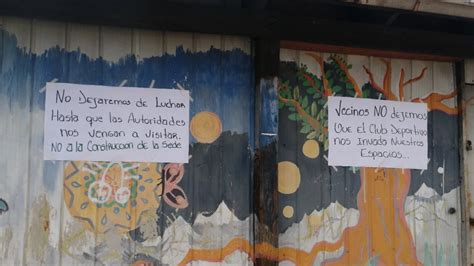 No Dejaremos de Luchar
Hasta que las Autoridades
nos vengan a Visitar.
NO a la Construccion de la Sede
Vecinos NO dejemos
Que el Club Deportivo
nos Invada Nuestros
Espacios..